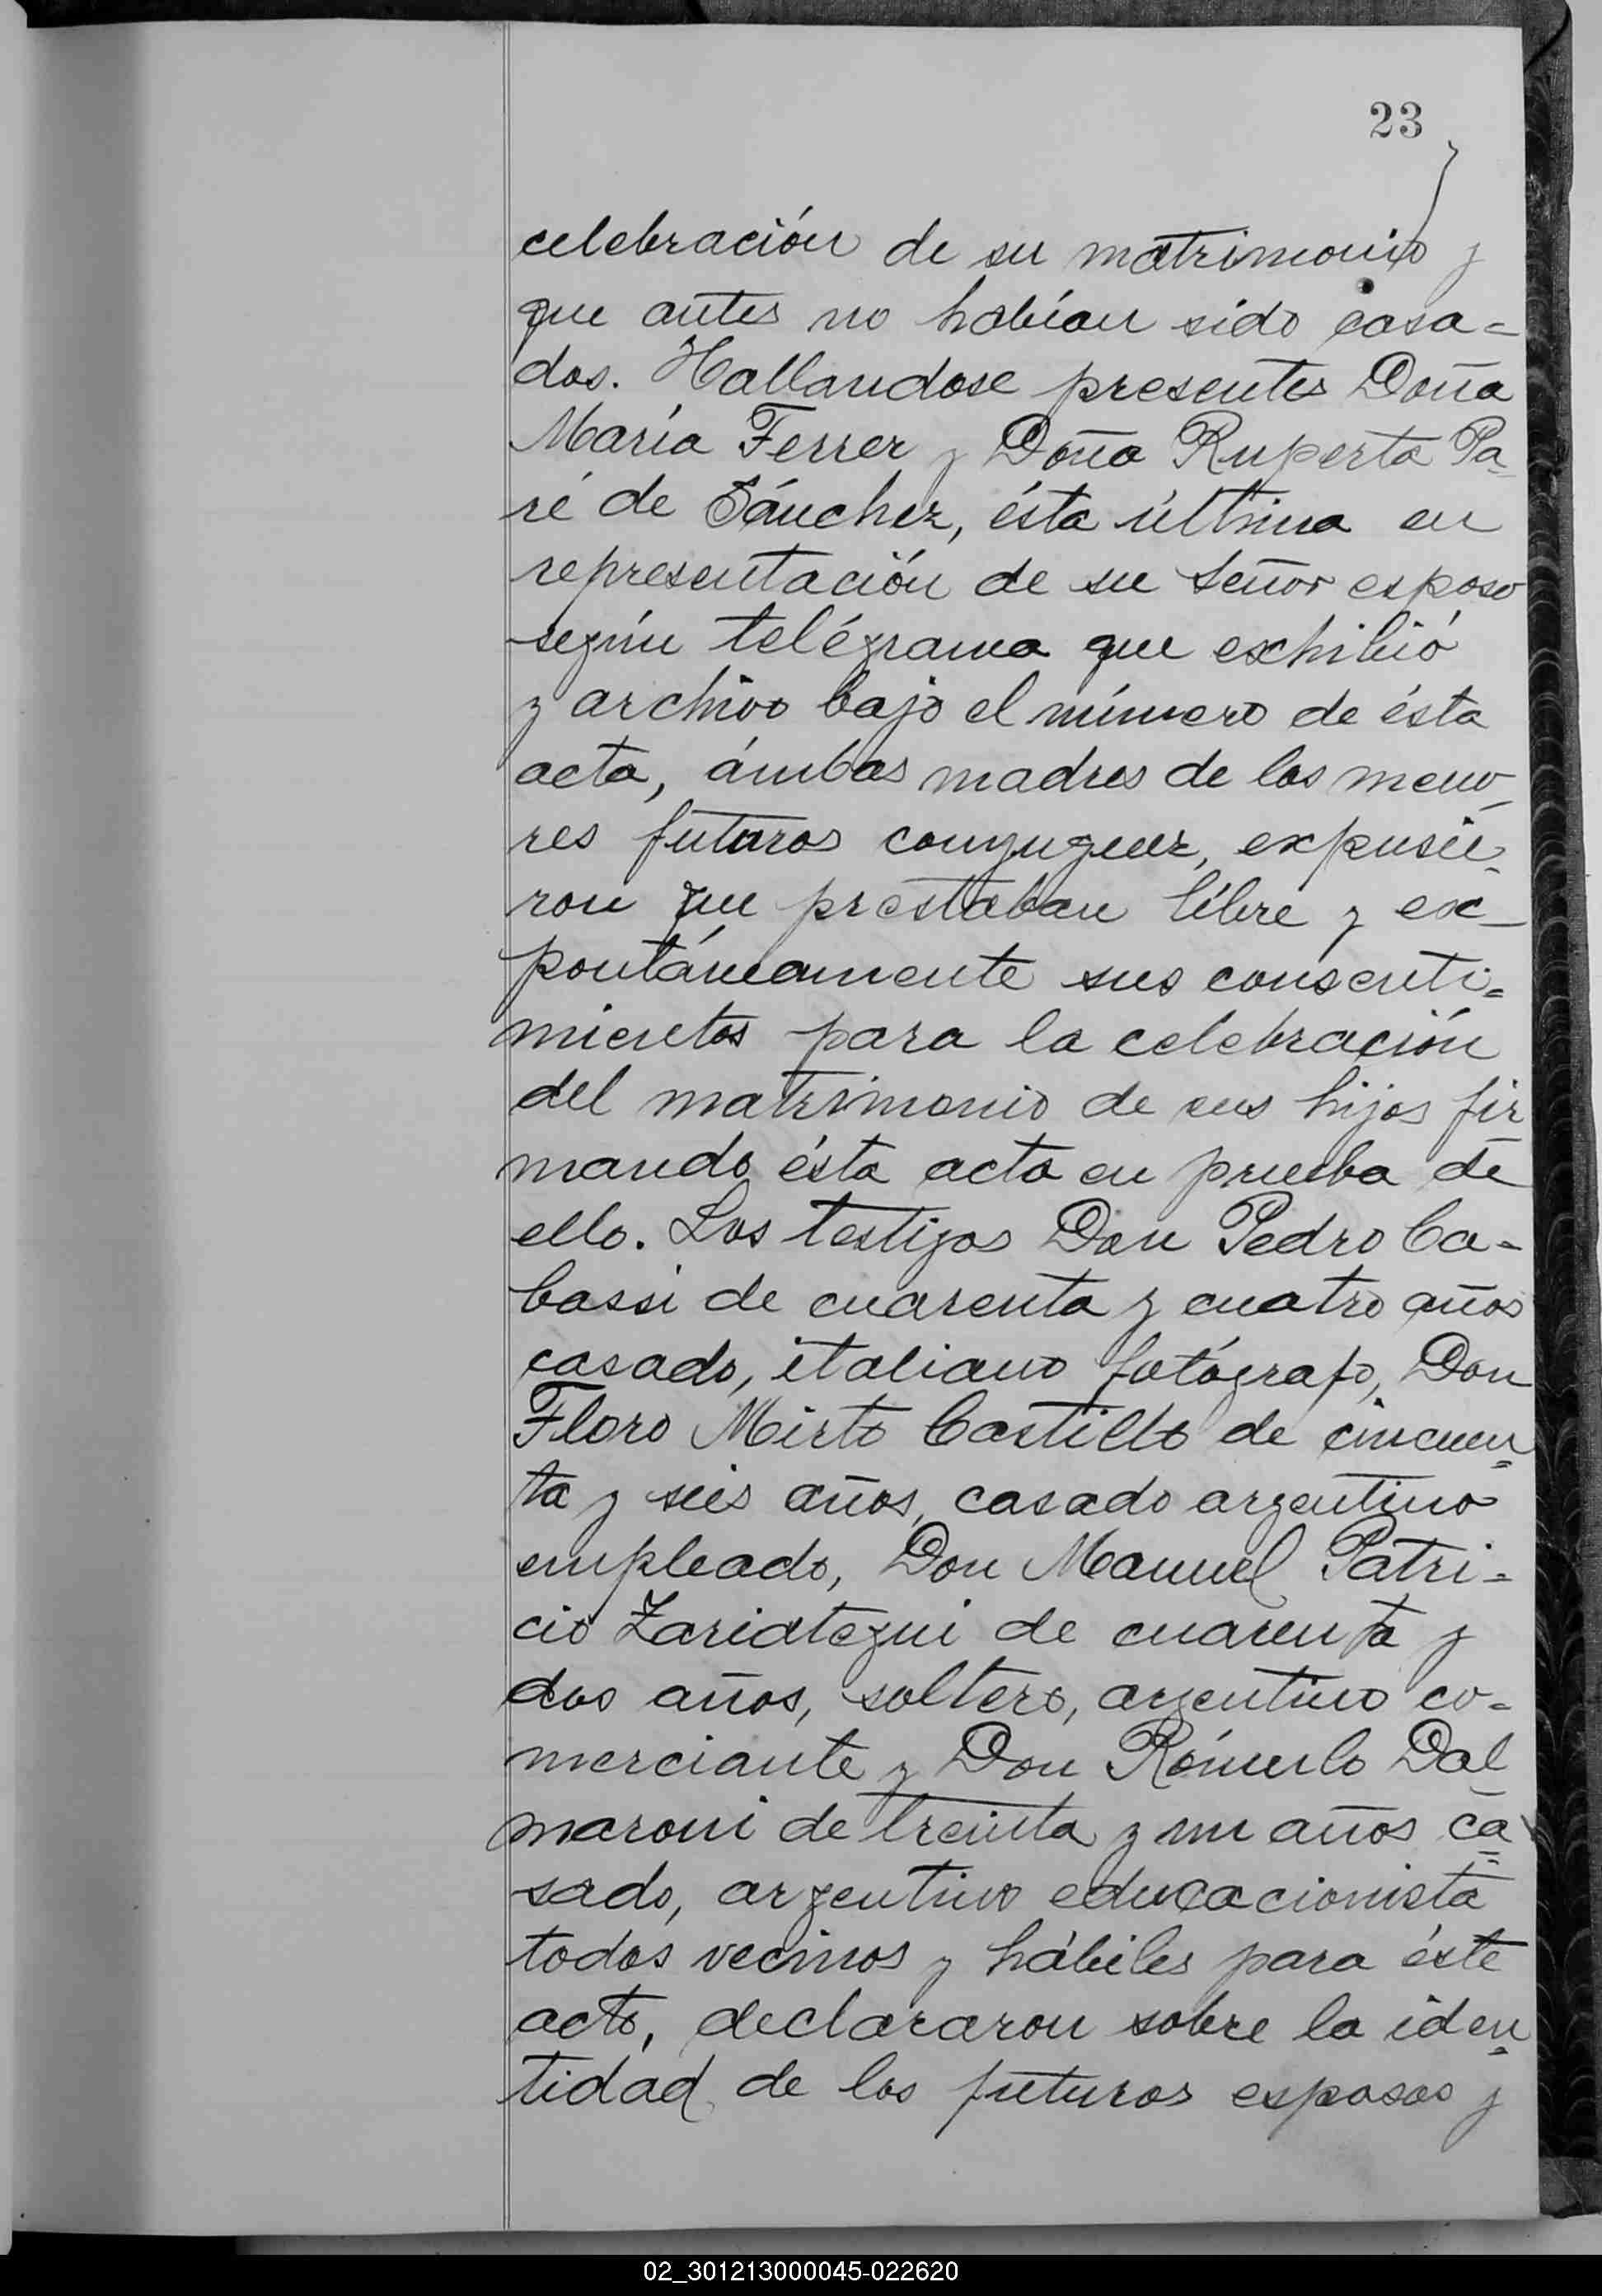 23
celebración de su matrimonio y
que antes no habían sido casa=
dos. Hallandose presentes Doña
María Ferrer y Doña Ruperta Pa_
ré de Sánchez, ésta última en
representación de su señor esposo
según telégrama que exhibió
y archivo bajo el número de ésta
acta, ámbas madres de los meno_
res futuros conyuguez, expusie_
ron que prestaban libre y ex_
pontáneamente sus consenti=
mientos para la celebración
del matrimonio de sus hijos fir_
mando ésta acta en prueba de
ello. Los testigos Don Pedro Ca=
bassi de cuarenta y cuatro años
casado, italiano fotógrafo, Don
Floro Mirto Castillo de cincuen=
ta y seis años, casado argentino
empleado, Don Manuel Patri=
cio Zariategui de cuarenta y
dos años, soltero, argentino co=
merciante y Don Rómulo Dal_
maroni de treinta y un años ca=
sado, argentino educacionista
todos vecinos y hábiles para éste
acto, declararon sobre la iden=
tidad de los futuros esposos y
02_301213000045-022620